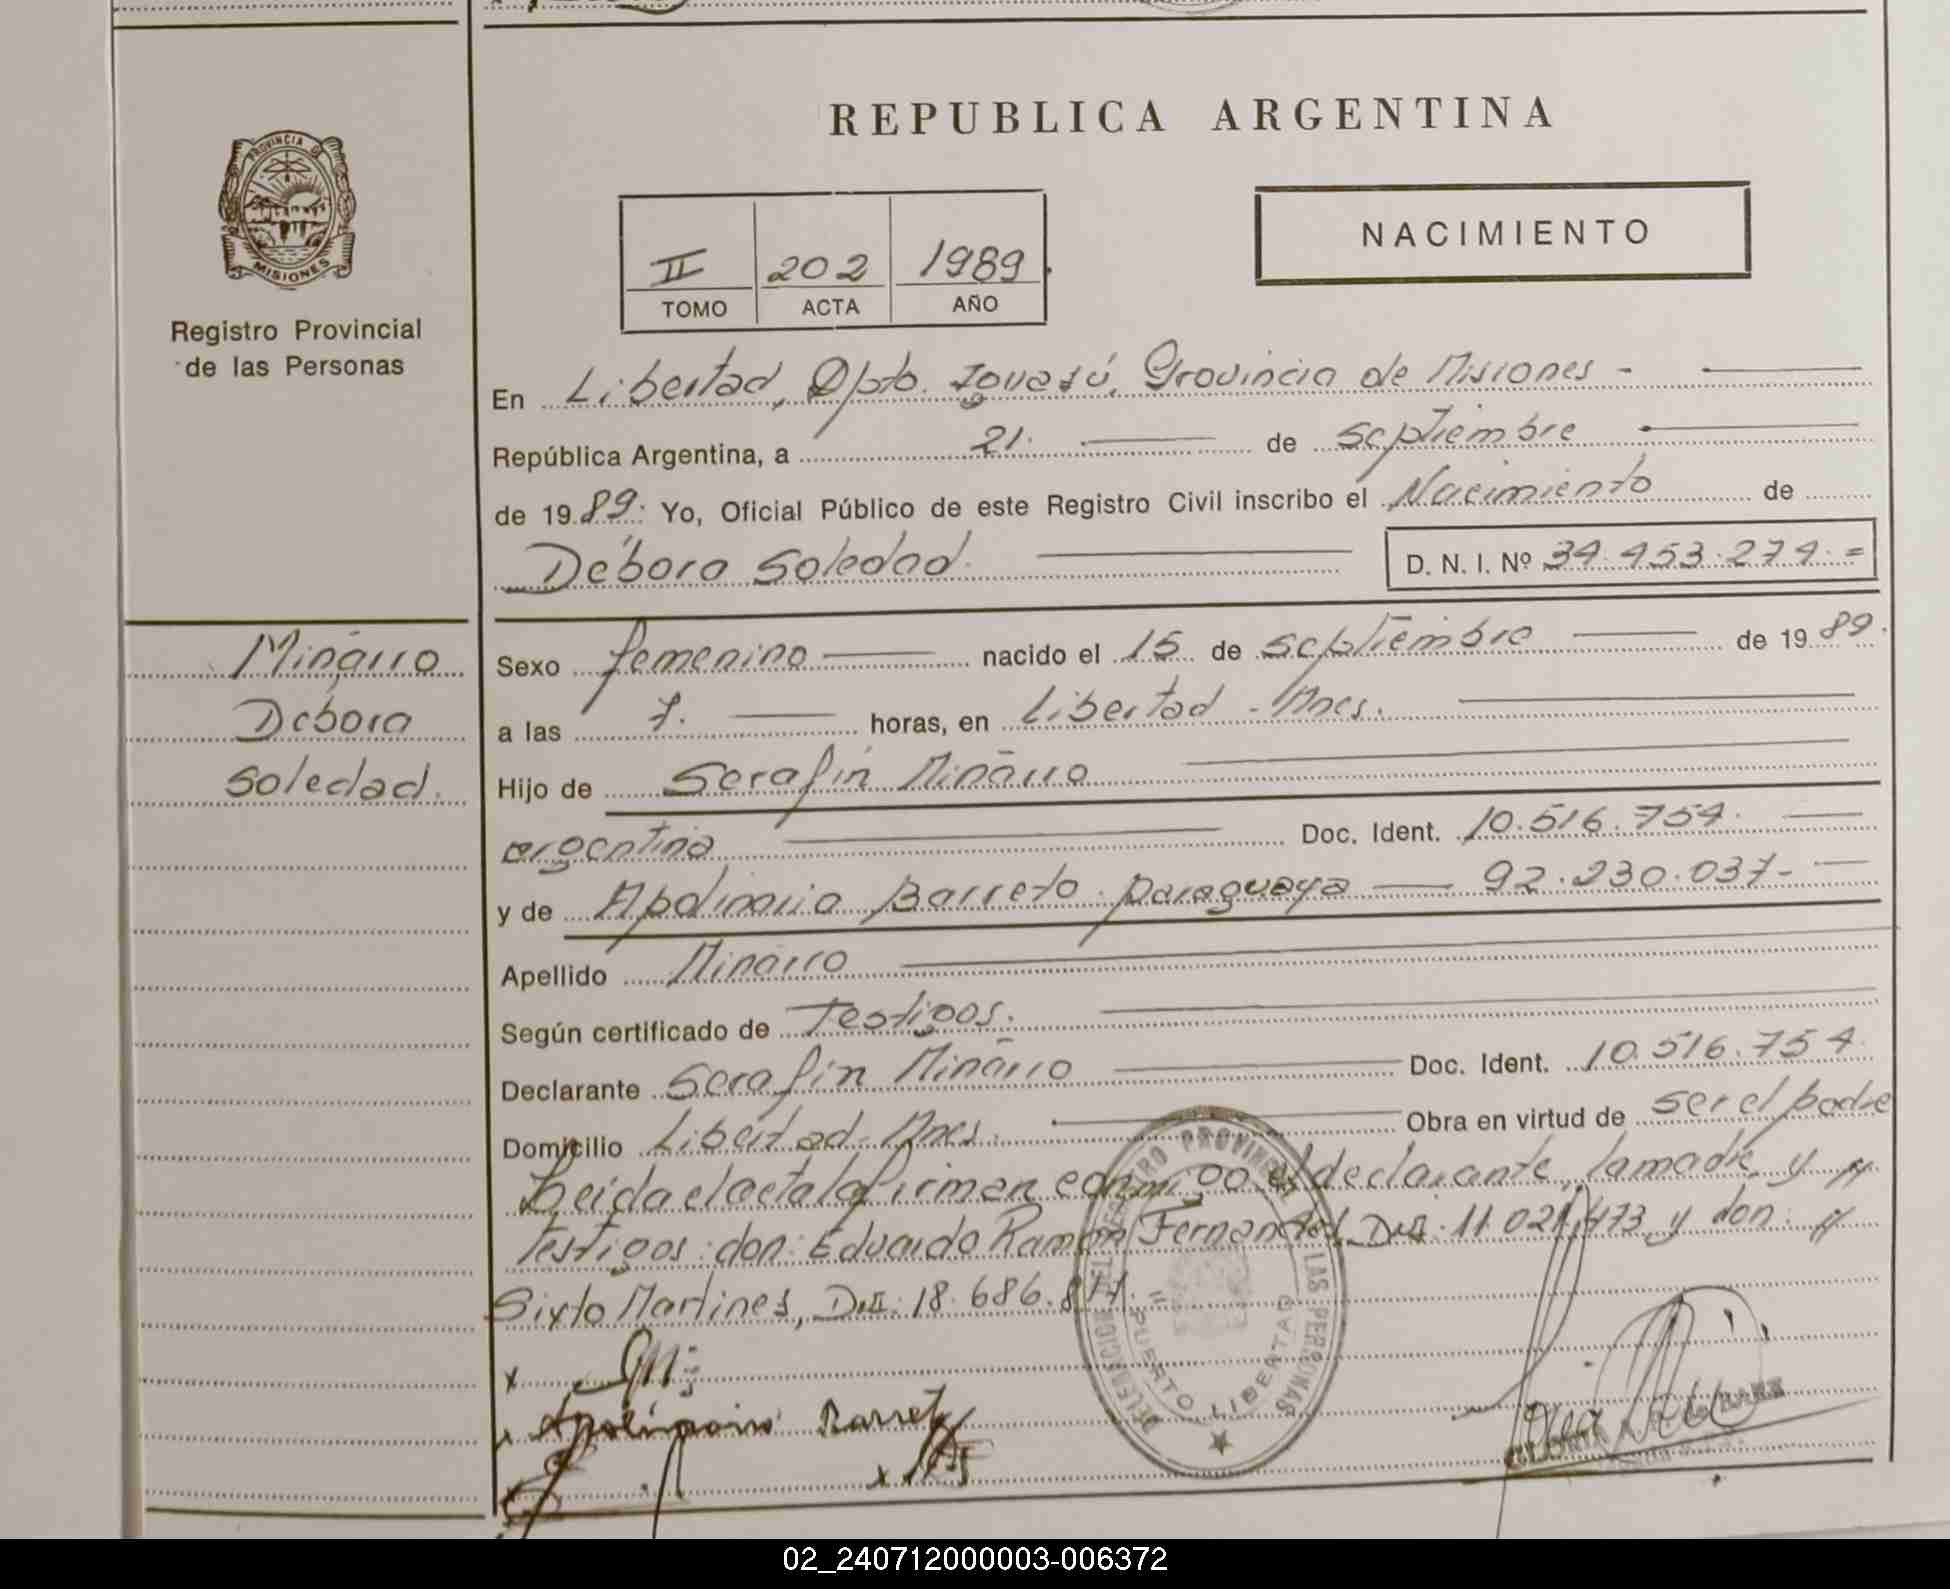 REPUBLICA ARGENTINA
PROVINCIA DE
MISIONES
Registro Provincial
de las Personas
II 202 1989
TOMO ACTA AÑO
NACIMIENTO
En Libertad, Dpto. Iguazú, Provincia de Misiones -
República Argentina, a 21. de Septiembre
de 1989. Yo, Oficial Público de este Registro Civil inscribo el Nacimiento de
Débora Soledad. D. N. I. Nº 34.453.274.=
Miñarro
Débora
Soledad.
Sexo femenino nacido el 15 de Septiembre de 1989.
a las 7. horas, en Libertad - Mnes.
Hijo de Serafín Miñarro
argentina Doc. Ident. 10.516.754.
y de Apolinaria Barreto. paraguaya 92.230.037-
Apellido Miñarro
Según certificado de Testigos.
Declarante Serafín Miñarro Doc. Ident. 10.516.754.
Domicilio Libertad-Mnes. Obra en virtud de ser el padre
Leida el acta la firman conmigo el declarante, la madre y
testigos: don: Eduardo Ramón Fernandez, DNI: 11.021.473 y don:
Sixto Martines, DNI: 18.686.
x
x Apolinaria Barreto
x
DELEGACION DEL REGISTRO PROVINCIAL DE LAS PERSONAS
"PUERTO LIBERTAD"
GLORIA
02_240712000003-006372